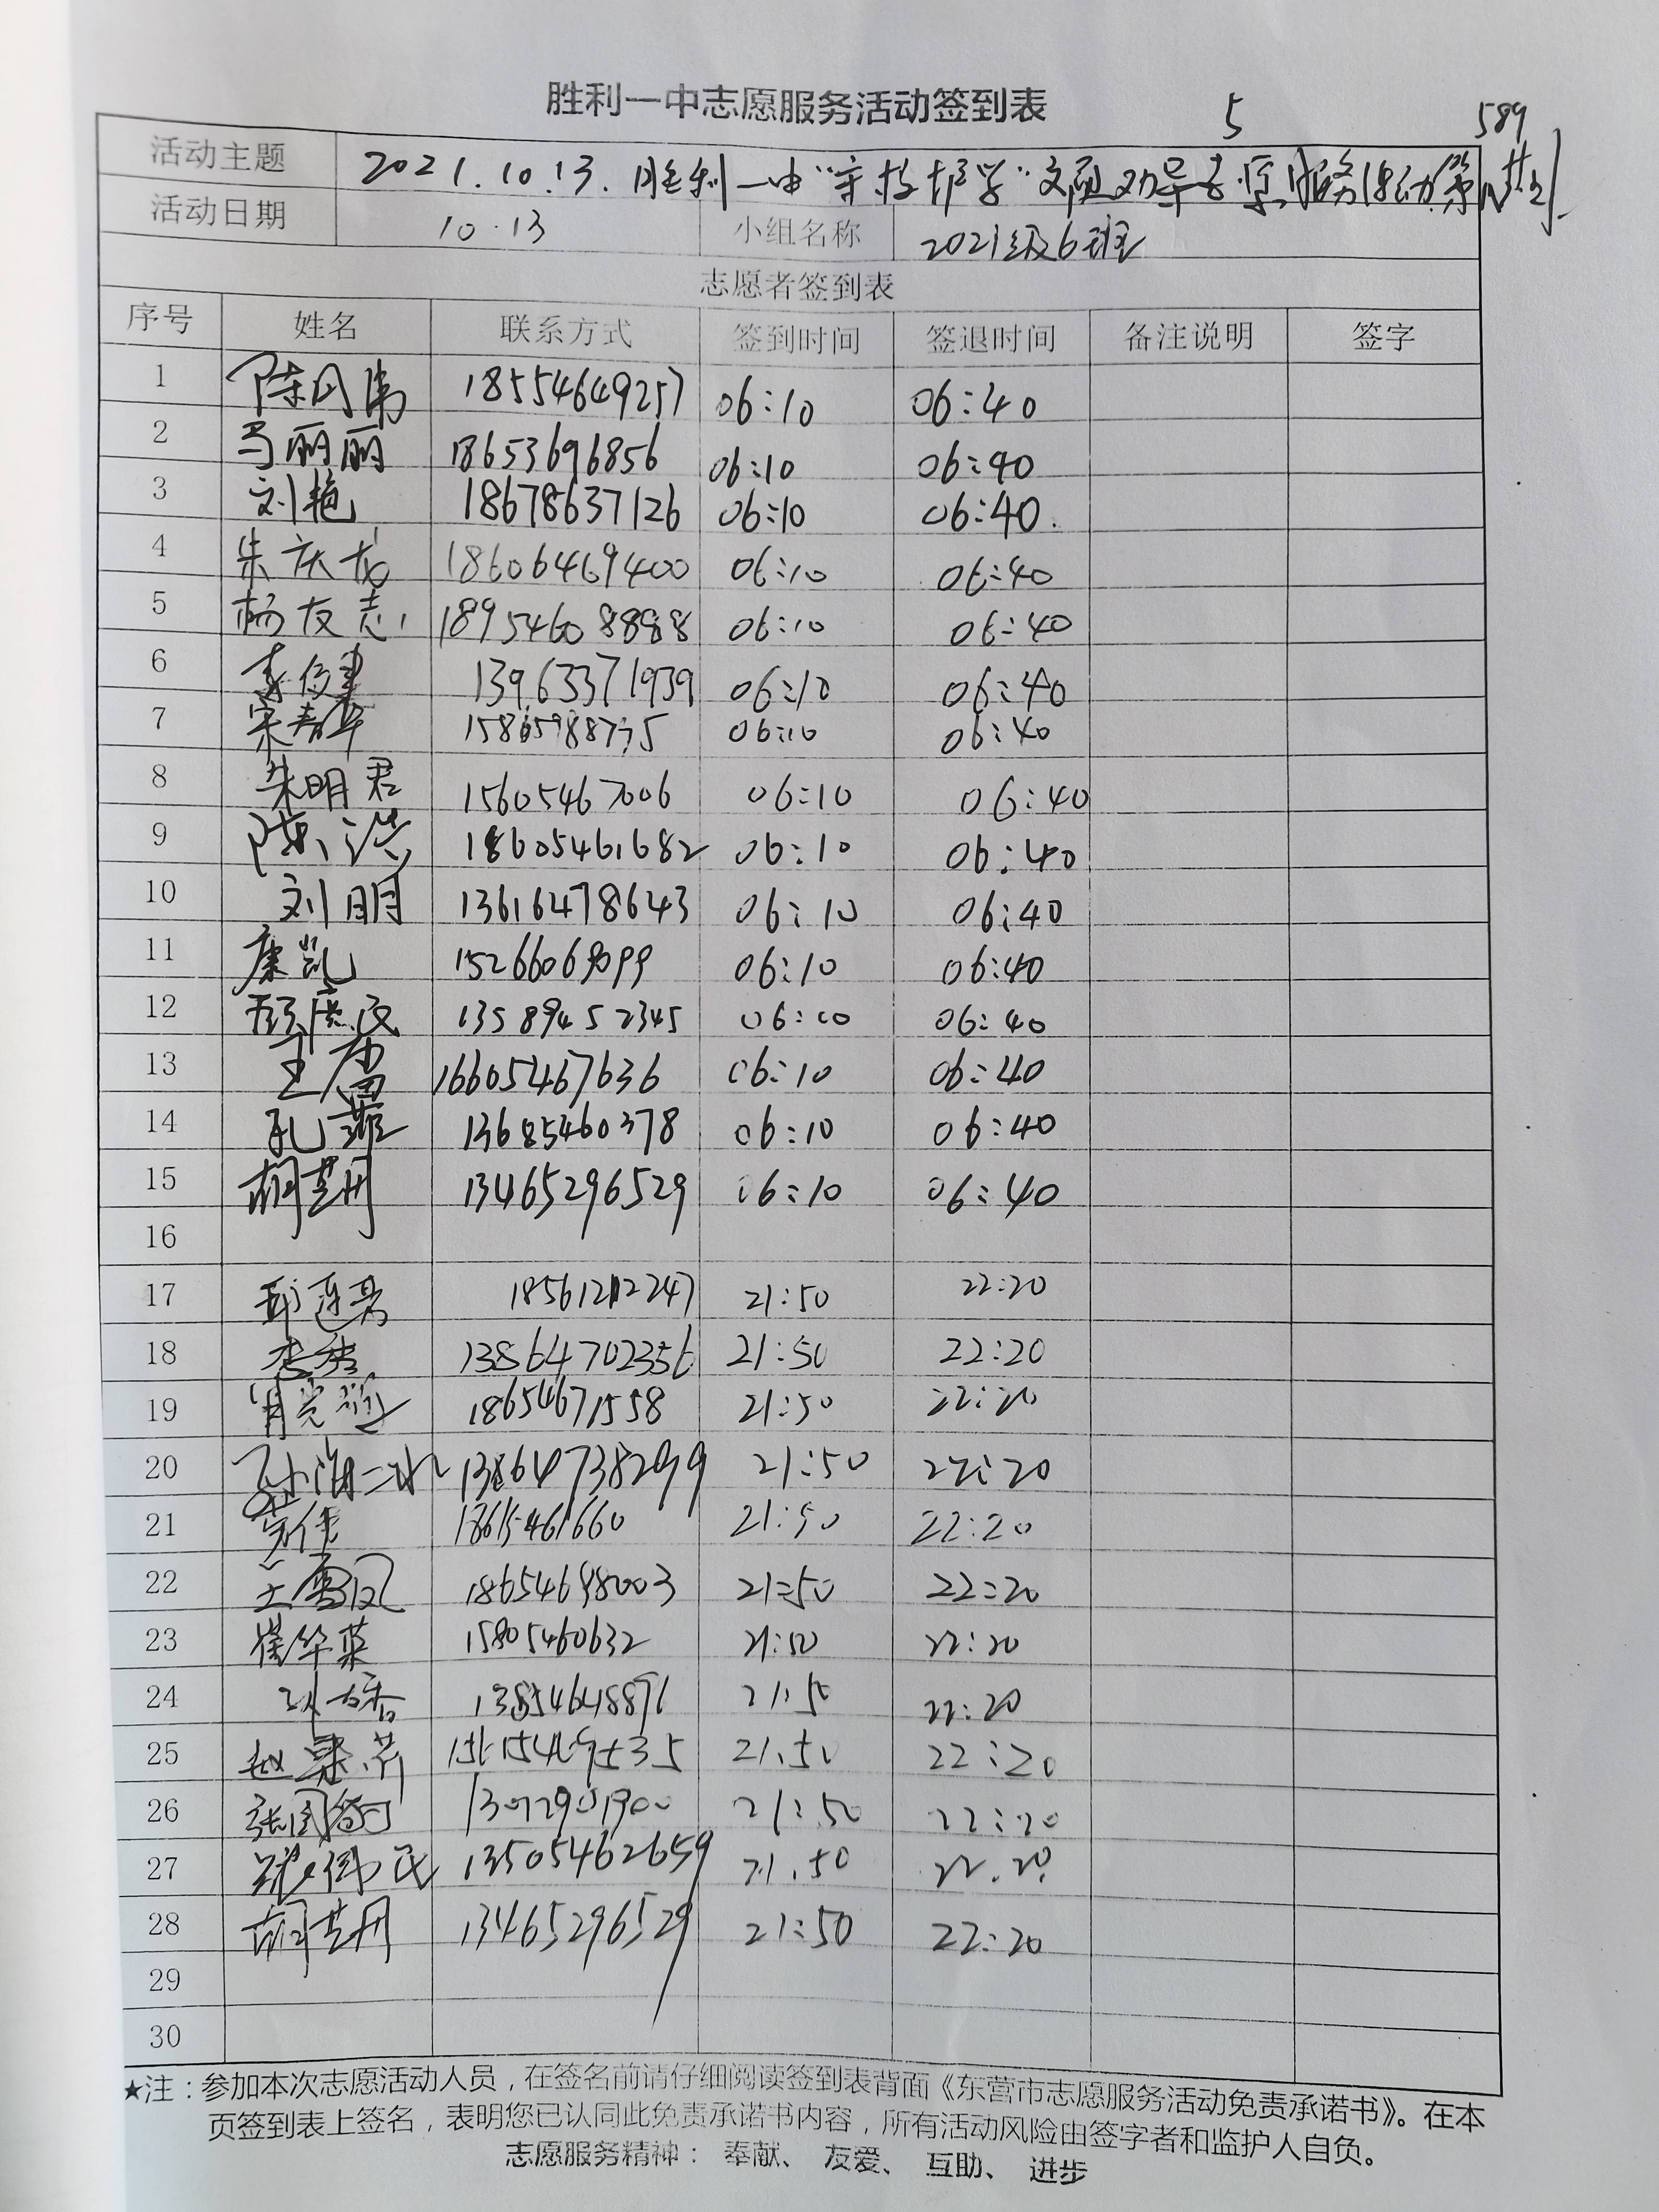 胜利一中志愿服务活动签到表
5 589
活动主题 2021.10.13.胜利一中“守校护学”交通劝导志愿服务活动第 期
活动日期 10.13 小组名称 2021级6班
志愿者签到表
序号 姓名 联系方式 签到时间 签退时间 备注说明 签字
1 陈 18554649257 06:10 06:40
2 马丽丽 18653696856 06:10 06:40
3 刘艳 18678637126 06:10 06:40.
4 朱庆龙 18606469400 06:10 06:40
5 杨友志 18954608898 06:10 06:40
6 李 13963371939 06:10 06:40
7 宋春华 06:10 06:40
8 朱明君 15605467006 06:10 06:40
9 陈洪 18605461682 06:10 06:40
10 刘明 13616478643 06:10 06:40
11 康凯 15266069099 06:10 06:40
12 13589452345 06:40
13 王富 16605467636 06:10 06:40
14 孔菲 13685460378 06:10 06:40
15 胡芝丹 13465296529 06:10 06:40
16
17 18561212247 21:50 22:20
18 李 13864702356 21:50 22:20
19 肖 18654671558 21:50 22:20
20 孙海冰 13864738299 21:50 22:20
21 18615461660 21:50 22:20
22 王雪凤 18654698003 21:50 22:20
23 崔华英 15805460632 21:50 22:20
24 13854648891 21:50 22:20
25 赵 21:50 22:20
26 张国 13072901900 21:50 22:20
27 13505462659 21.50 22.20
28 胡芝丹 13465296529 21:50 22:20
29
30
★注：参加本次志愿活动人员，在签名前请仔细阅读签到表背面《东营市志愿服务活动免责承诺书》。在本
页签到表上签名，表明您已认同此免责承诺书内容，所有活动风险由签字者和监护人自负。
志愿服务精神： 奉献、 友爱、 互助、 进步